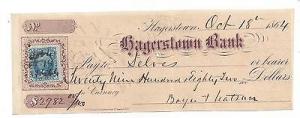 Hagerstown, Oct 18th 1864
Hagerstown Bank
Pay to Selves or bearer
Twenty Nine Hundred Eighty Two Dollars
in Currency
$2982